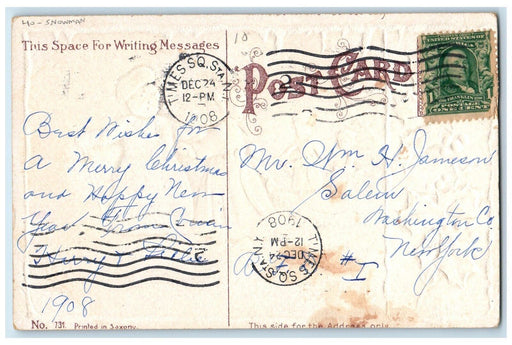 40 - SNOWMAN
10
This Space For Writing Messages
POST CARD
TIMES SQ. STA. N.Y.
DEC 24
12-PM
1908
UNITED STATES OF AMERICA
FRANKLIN
POSTAGE
ONE CENT
Best Wishes for
a Merry Christmas
and Happy New
Year. From
Harry &
1908
Mr. Wm H. Jameson
Salem
Washington Co
New York
# 1
TIMES SQ. STA. N.Y.
DEC 24
12-PM
1908
No. 731. Printed in Saxony.
This side for the Address only.